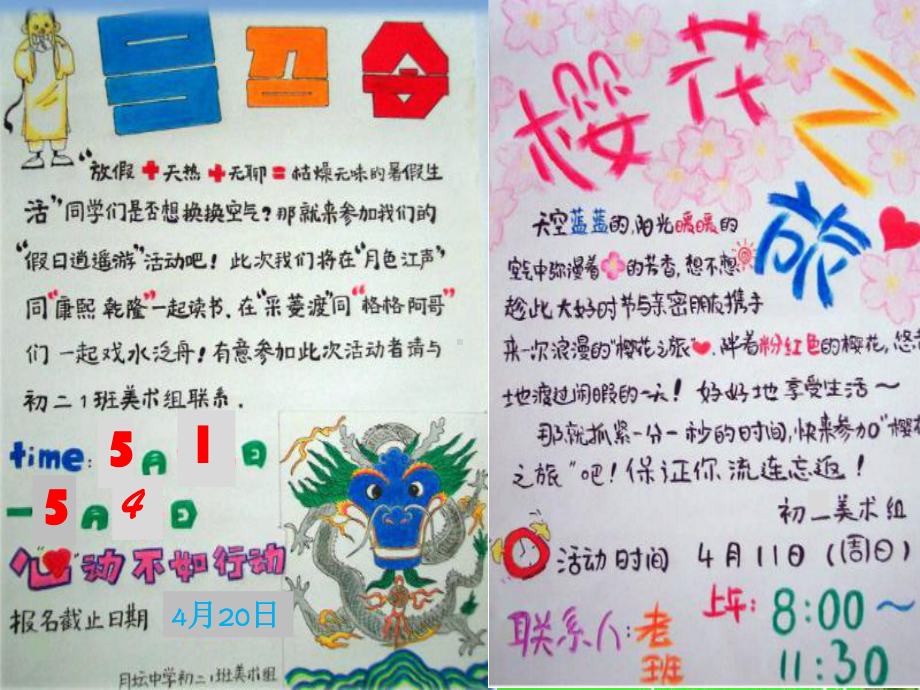 号召令
"放假+天热+无聊=枯燥无味的暑假生
活"同学们是否想换换空气?那就来参加我们的
"假日逍遥游"活动吧!此次我们将在"月色江声"
同"康熙 乾隆"一起读书.在"采菱渡"同"格格阿哥"
们一起戏水泛舟!有意参加此次活动者请与
初二1班美术组联系.
time:5月1日
—5月4日
"心"动不如行动
报名截止日期 4月20日
月坛中学初二1班美术组
樱花之旅
天空蓝蓝的,阳光暖暖的
空气中弥漫着的芳香,想不想
趁此大好时节与亲密朋友携手
来一次浪漫的"樱花之旅".伴着粉红色的樱花,悠
地渡过闲暇的一天!好好地享受生活~
那就抓紧一分一秒的时间,快来参加"樱花
之旅"吧!保证你流连忘返!
初一美术组
活动时间 4月11日(周日)
上午:8:00~
11:30
联系人:老
班